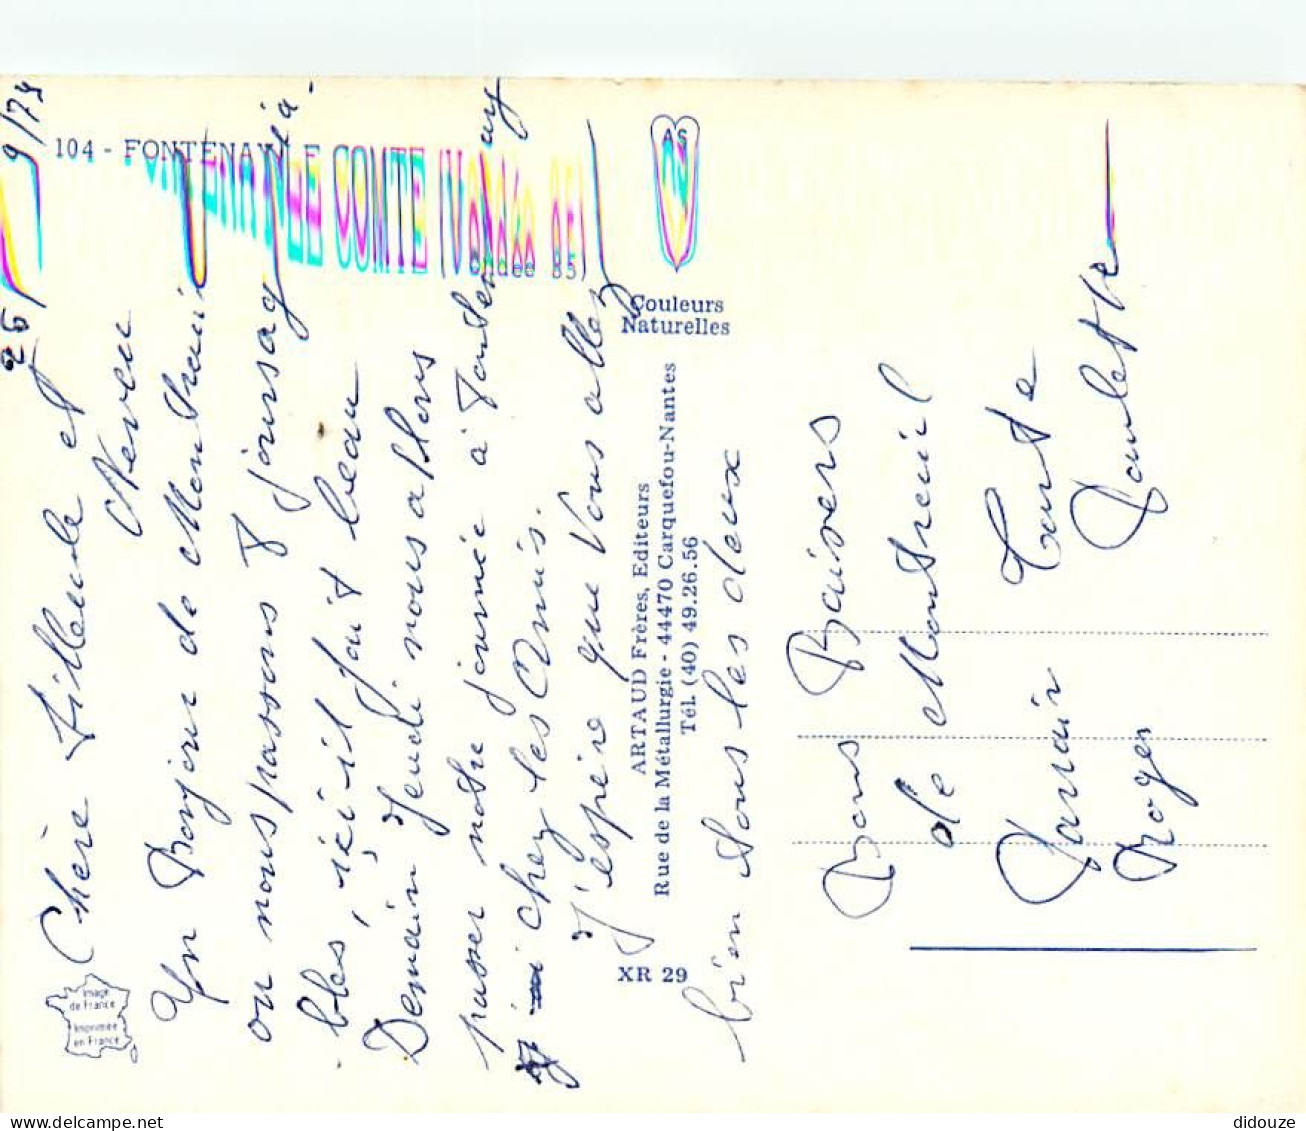 26/9/79
104 - FONTENAY LE COMTE (Vendée 85)
Chère filleule et
Neveu
Un Bonjour de Montreuil
ou nous passons 8 jours agréa-
bles, ici il fait beau
Demain Jeudi nous allons
passer notre journée à Fontenay
chez les Amis.
J'espère que Vous allez
bien tous les deux
AS
Couleurs
Naturelles
ARTAUD Frères, Editeurs
Rue de la Métallurgie - 44470 Carquefou-Nantes
Tél. (40) 49.26.56
XR 29
Image
de France
Imprimée
en France
Bons Baisers
de Montreuil
Parrain Tante
Roger Paulette
didouze